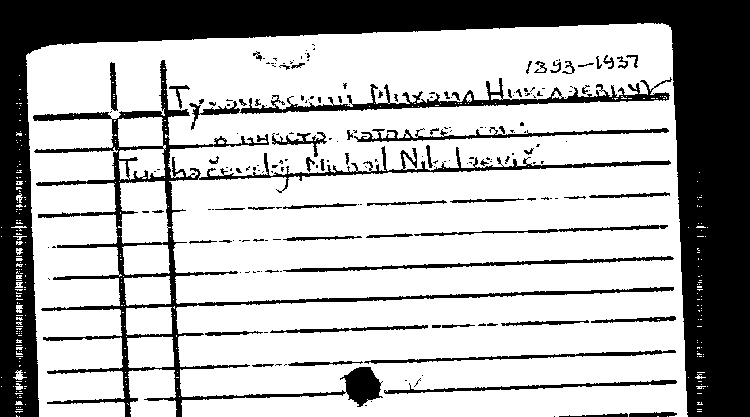 1893-1937
Тухачевский Михаил Николаевич
в иностр. каталоге см.:
Tuchačevskij, Michail Nikolaevič.